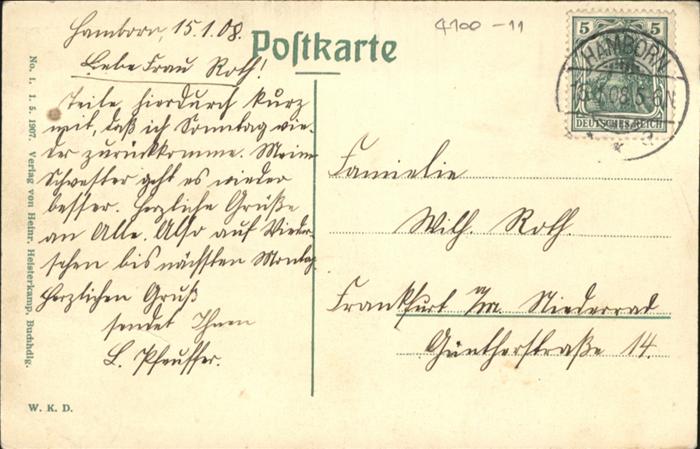 Hamborn, 15.1.08.
Postkarte
4100 - 11
Liebe Frau Roth!
Teile hierdurch kurz
mit, daß ich Sonntag wie-
der zurückkomme. Meine
Schwester geht es wieder
besser. Herzliche Grüße
an Alle. Also auf Wieder-
sehen bis nächsten Montag
Herzlichen Gruß
sendet Ihnen
L. Pfeuffer.
Familie
Wilh. Roth.
Frankfurt a/m. Niederrad
Güntherstraße 14.
5 5
HAMBORN
15.1.08.5-6N
DEUTSCHES REICH
No. 1. 1. 5. 1907. Verlag von Heinr. Heisterkamp, Buchhdlg.
W. K. D.